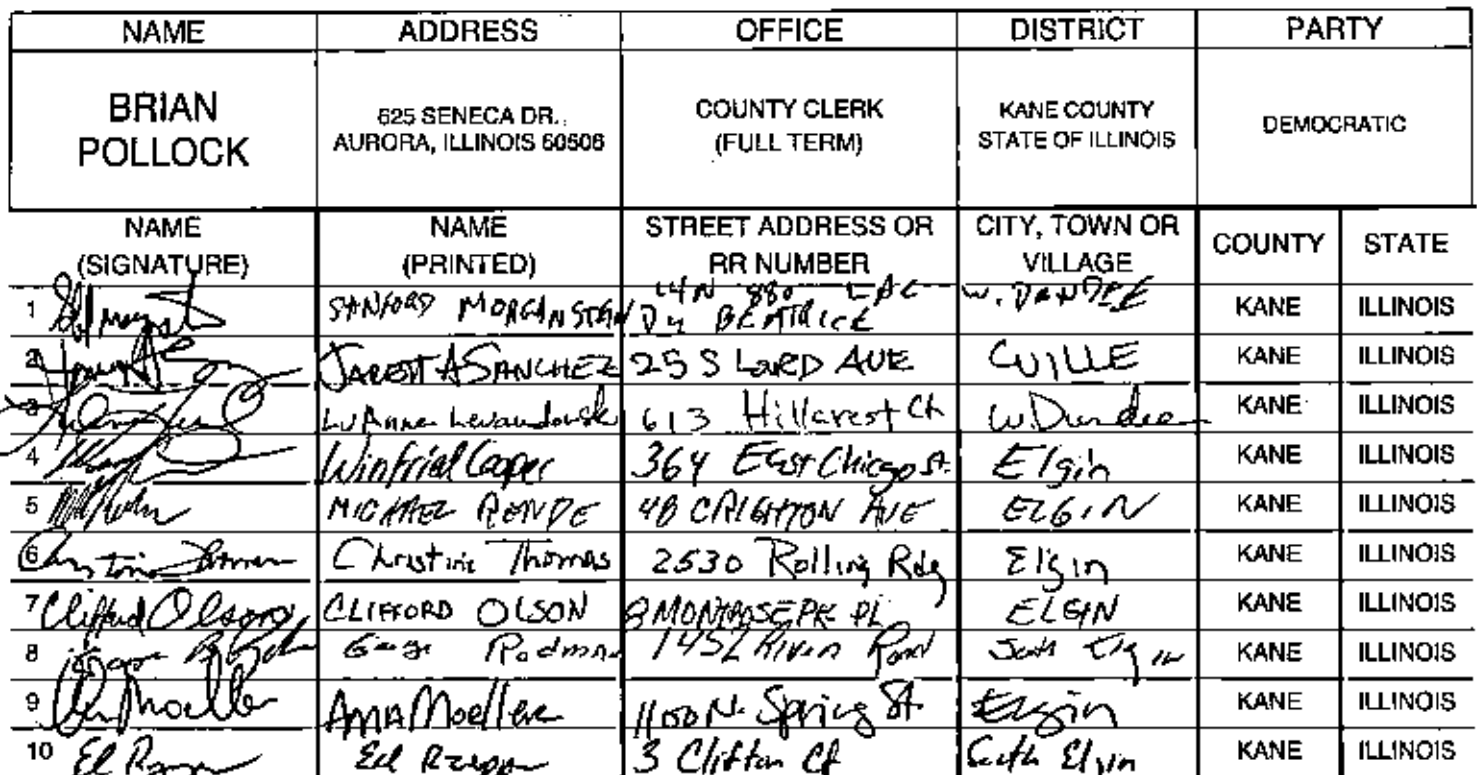 NAME ADDRESS OFFICE DISTRICT PARTY
BRIAN POLLOCK 625 SENECA DR., AURORA, ILLINOIS 60506 COUNTY CLERK (FULL TERM) KANE COUNTY STATE OF ILLINOIS DEMOCRATIC
NAME (SIGNATURE) NAME (PRINTED) STREET ADDRESS OR RR NUMBER CITY, TOWN OR VILLAGE COUNTY STATE
1 SANFORD MORGANSTEIN 14N 880 BEATRICE W. DUNDEE KANE ILLINOIS
2 JARETT A SANCHEZ 25 S LORD AVE CVILLE KANE ILLINOIS
3 LuAnne Levandowski 613 Hillcrest Ct W. Dundee KANE ILLINOIS
4 Winfried Cooper 364 East Chicago St. Elgin KANE ILLINOIS
5 MICHAEL 48 CRIGHTON AVE ELGIN KANE ILLINOIS
6 Christine Thomas 2530 Rolling Rdg Elgin KANE ILLINOIS
7 Clifford Olson CLIFFORD OLSON ELGIN KANE ILLINOIS
8 Redman 1452 River Road South Elgin KANE ILLINOIS
9 Moeller ANNA Moeller 1100 N. Spring St. Elgin KANE ILLINOIS
10 Ed Ed 3 Clifton Ct South Elgin KANE ILLINOIS